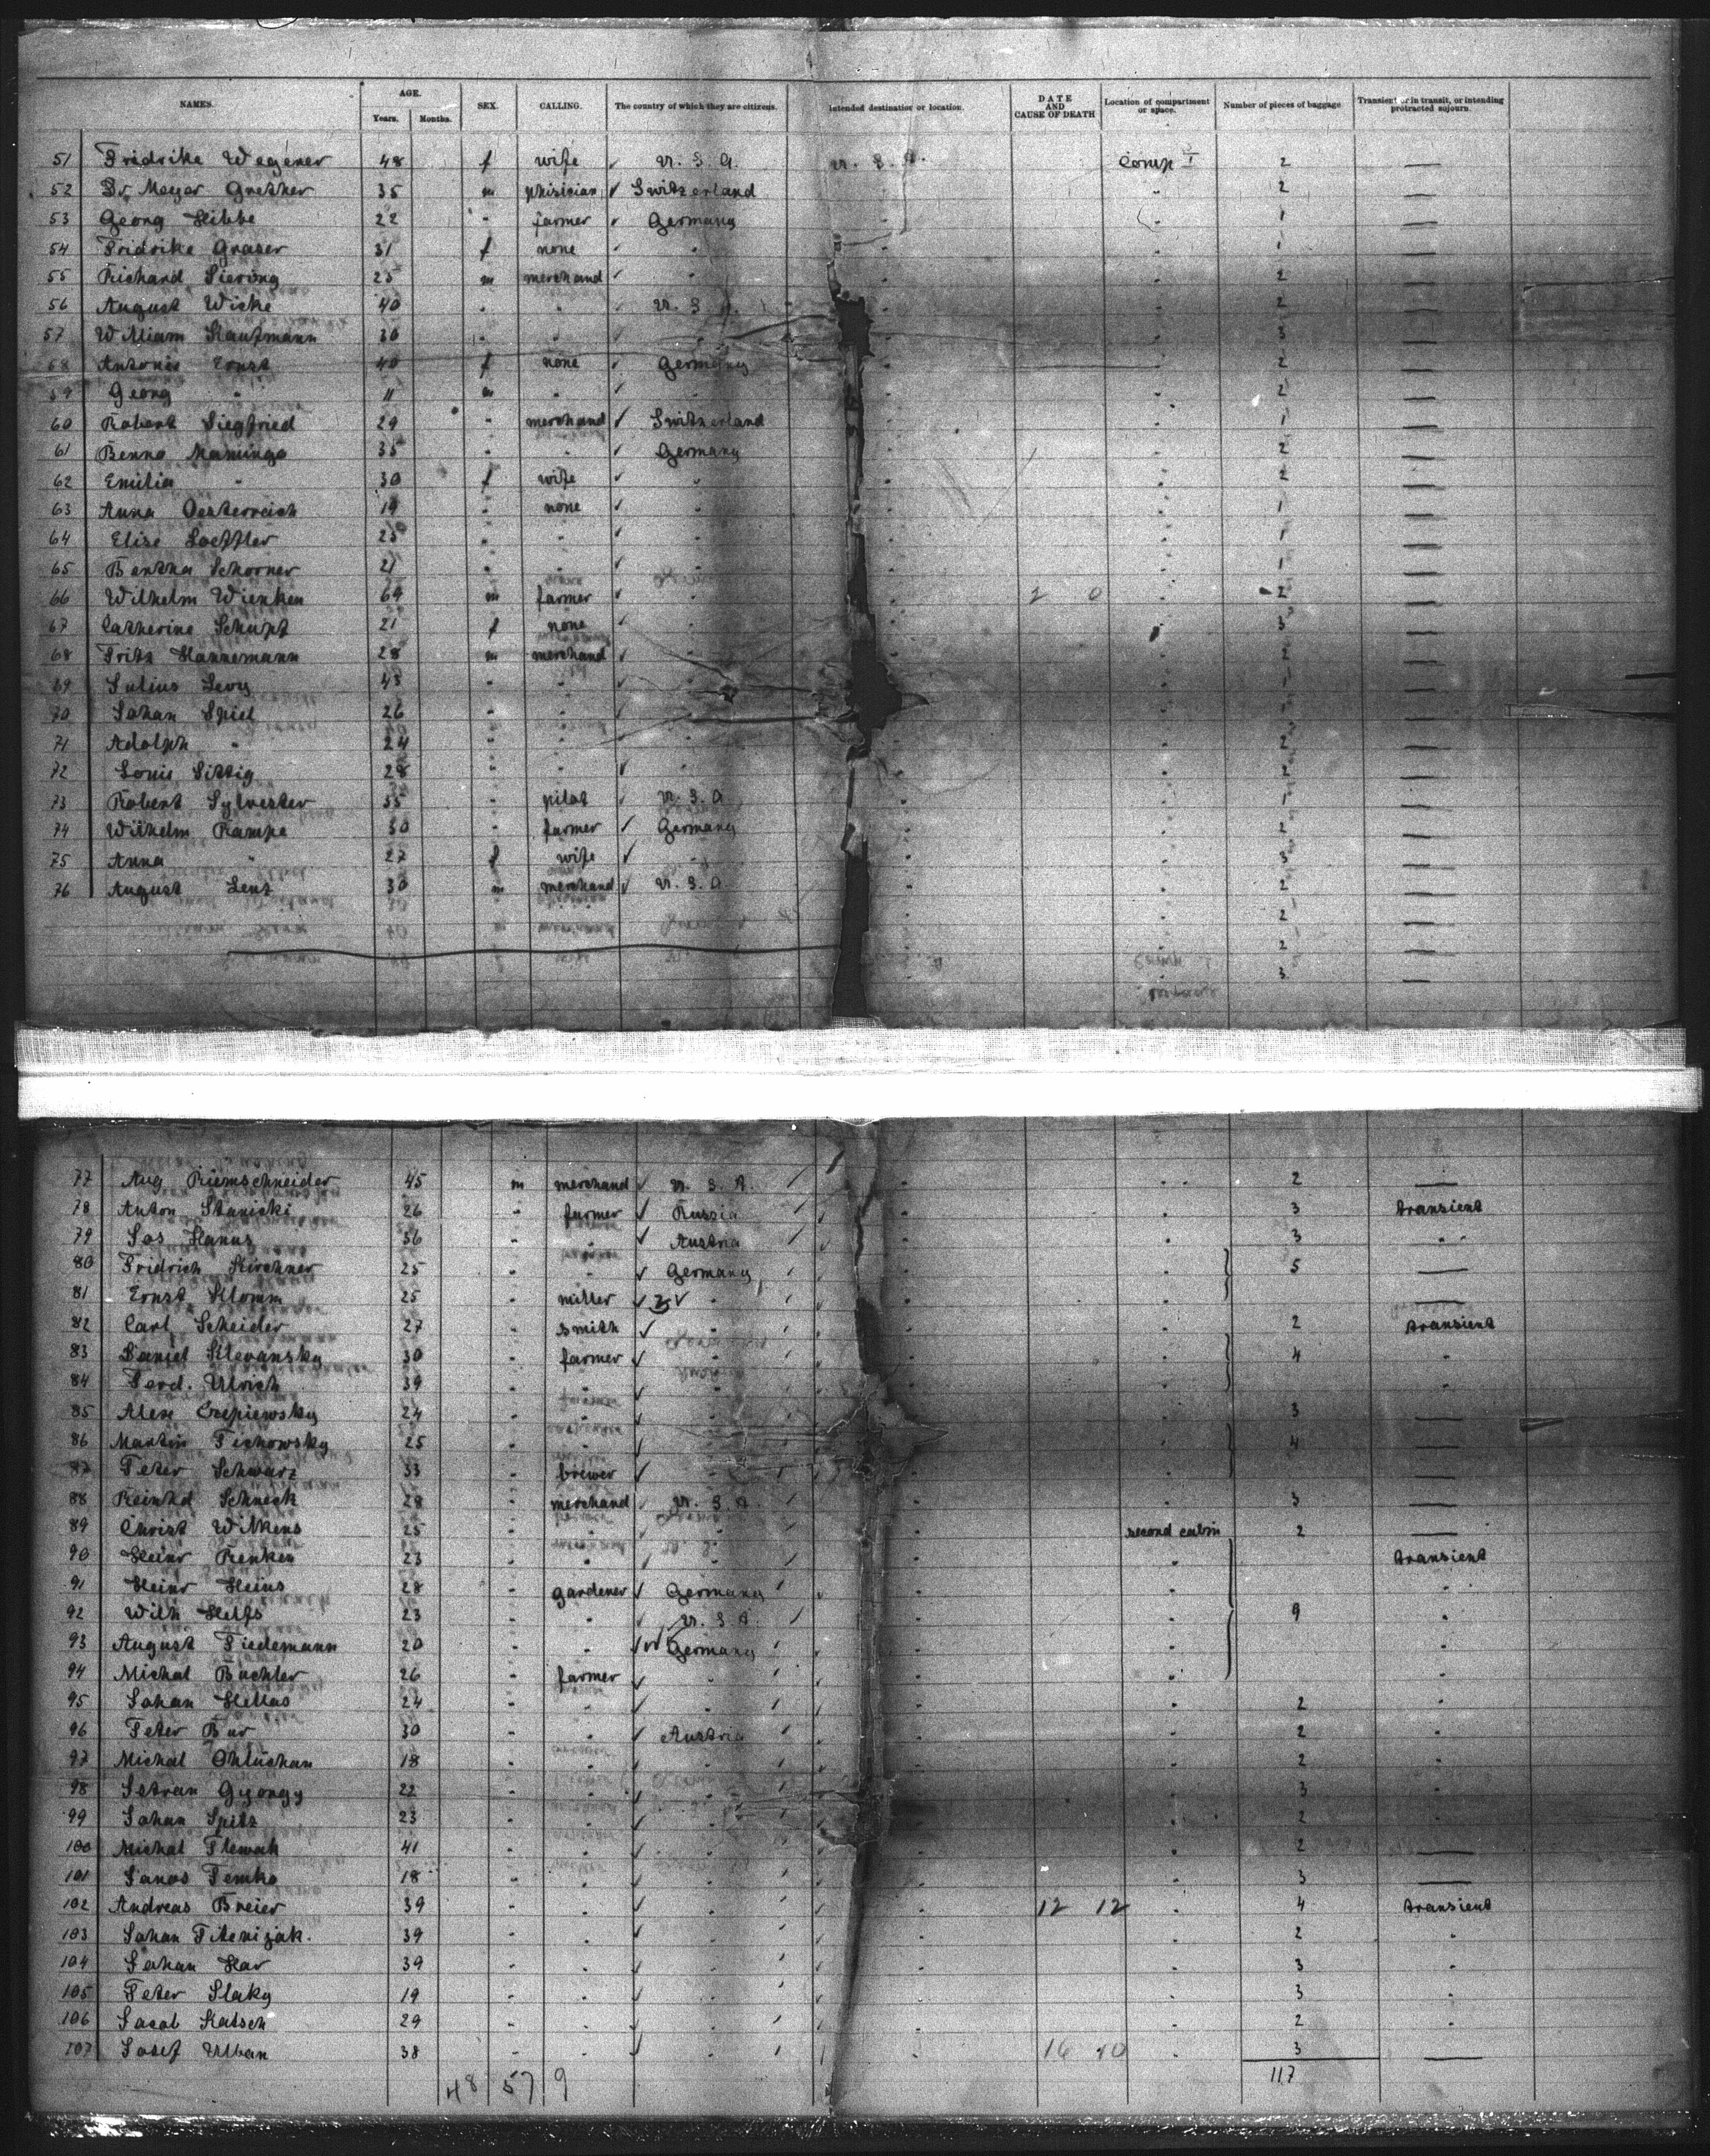 NAMES. AGE. SEX. CALLING. The country of which they are citizens. Intended destination or location. DATE AND CAUSE OF DEATH Location of compartment or space. Number of pieces of baggage Transient or in transit, or intending protracted sojourn.
Years. Months.
51 Fridrike Wegener 48 f wife ✓ U. S. A. U. S. A. Comp I 2 —
52 Dr Meyer Grether 35 m phisician ✓ Switzerland " " 2 —
53 Georg Hibbe 22 " farmer ✓ Germany " " 1 —
54 Fridrike Graser 31 f none ✓ " " " 1 —
55 Richard Siering 25 m merchand ✓ " " " 2 —
56 August Wicke 40 " " ✓ U. S. A. " " 2 —
57 William Kaufmann 30 " " ✓ " " " 3 —
58 Antonie Ernst 40 f none ✓ Germany " 2 —
59 Georg " 11 m " ✓ " " 2 —
60 Robert Siegfried 29 " merchand ✓ Switzerland " " 1 —
61 Benno 35 " " ✓ Germany " " 2 —
62 Emilia " 30 f wife ✓ " " " 2 —
63 Anna Oesterreich 19 " none ✓ " " " 1 —
64 Elise Loeffler 25 " " ✓ " " " 1 —
65 Bertha Schorner 21 " " ✓ " " " 1 —
66 Wilhelm Wienken 64 m farmer ✓ " " 2 0 " 2 —
67 Catherine Schupf 21 f none ✓ " " 3 —
68 Fritz Hannemann 28 m merchand ✓ " " " 2 —
69 Julius Levy 43 " " ✓ " " " 1 —
70 Johan Spiel 26 " " ✓ " " 1 —
71 Adolph " 24 " " " " " 2 —
72 Louis Sittig 28 " " ✓ " " " 2 —
73 Robert Sylvester 55 " pilot ✓ U. S. A " " 1 —
74 Wilhelm Rampe 30 " farmer ✓ Germany " " 2 —
75 Anna " 27 f wife ✓ " " " 3 —
76 August Lenz 30 m merchand ✓ U. S. A. " " 2 —
" " 2 —
" 2 —
" 3 —
77 Aug Riemschneider 45 m merchand ✓ U. S. A. " " 2 —
78 Anton Stanicki 26 " farmer ✓ Russia " " 3 transient
79 Jos Hanus 36 " " ✓ Austria " " 3 "
80 Fridrich Kirchner 25 " " ✓ Germany " " 5 —
81 Ernst Klomm 25 " miller ✓ " " " —
82 Carl Scheider 27 " smith ✓ " " " 2 transient
83 Daniel 30 " farmer ✓ " " " 4 "
84 Ferd. Ulrich 39 " " ✓ " " " "
85 Alex 24 " " ✓ " " " 3 —
86 Martin 25 " " ✓ " " 4 —
87 Peter Schwarz 33 " brewer ✓ " " " —
88 Reinhd Schneck 28 " merchand ✓ U. S. A. " " 3 —
89 Christ Wilkens 25 " " ✓ " " second cabin 2 —
90 Heinr Renken 23 " " ✓ " " " transient
91 Heinr Heins 28 " gardener ✓ Germany " " "
92 Wilh 23 " " ✓ U. S. A. " " 9 "
93 August Tiedemann 20 " " ✓ Germany " " "
94 Michal Buchler 26 " farmer ✓ " " " "
95 Johan 24 " " ✓ " " " 2 "
96 Peter Bur 30 " " ✓ Austria " " 2 "
97 Michal 18 " " ✓ " " " 2 "
98 Gyorgy 22 " " ✓ " " 3 "
99 Johan Spitz 23 " " ✓ " " 2 "
100 Michal 41 " " ✓ " " " 2 —
101 Janos 18 " " ✓ " " " 3 —
102 Andreas Breier 39 " " ✓ " " 12 12 " 4 transient
103 Johan 39 " " ✓ " " " 2 "
104 Johan 39 " " ✓ " " " 3 "
105 Peter Slaky 19 " " ✓ " " " 3 "
106 Jacob Katsch 29 " " ✓ " " " 2 "
107 Josef Urban 38 " " ✓ " " 16 " 3 —
48 57 9 117